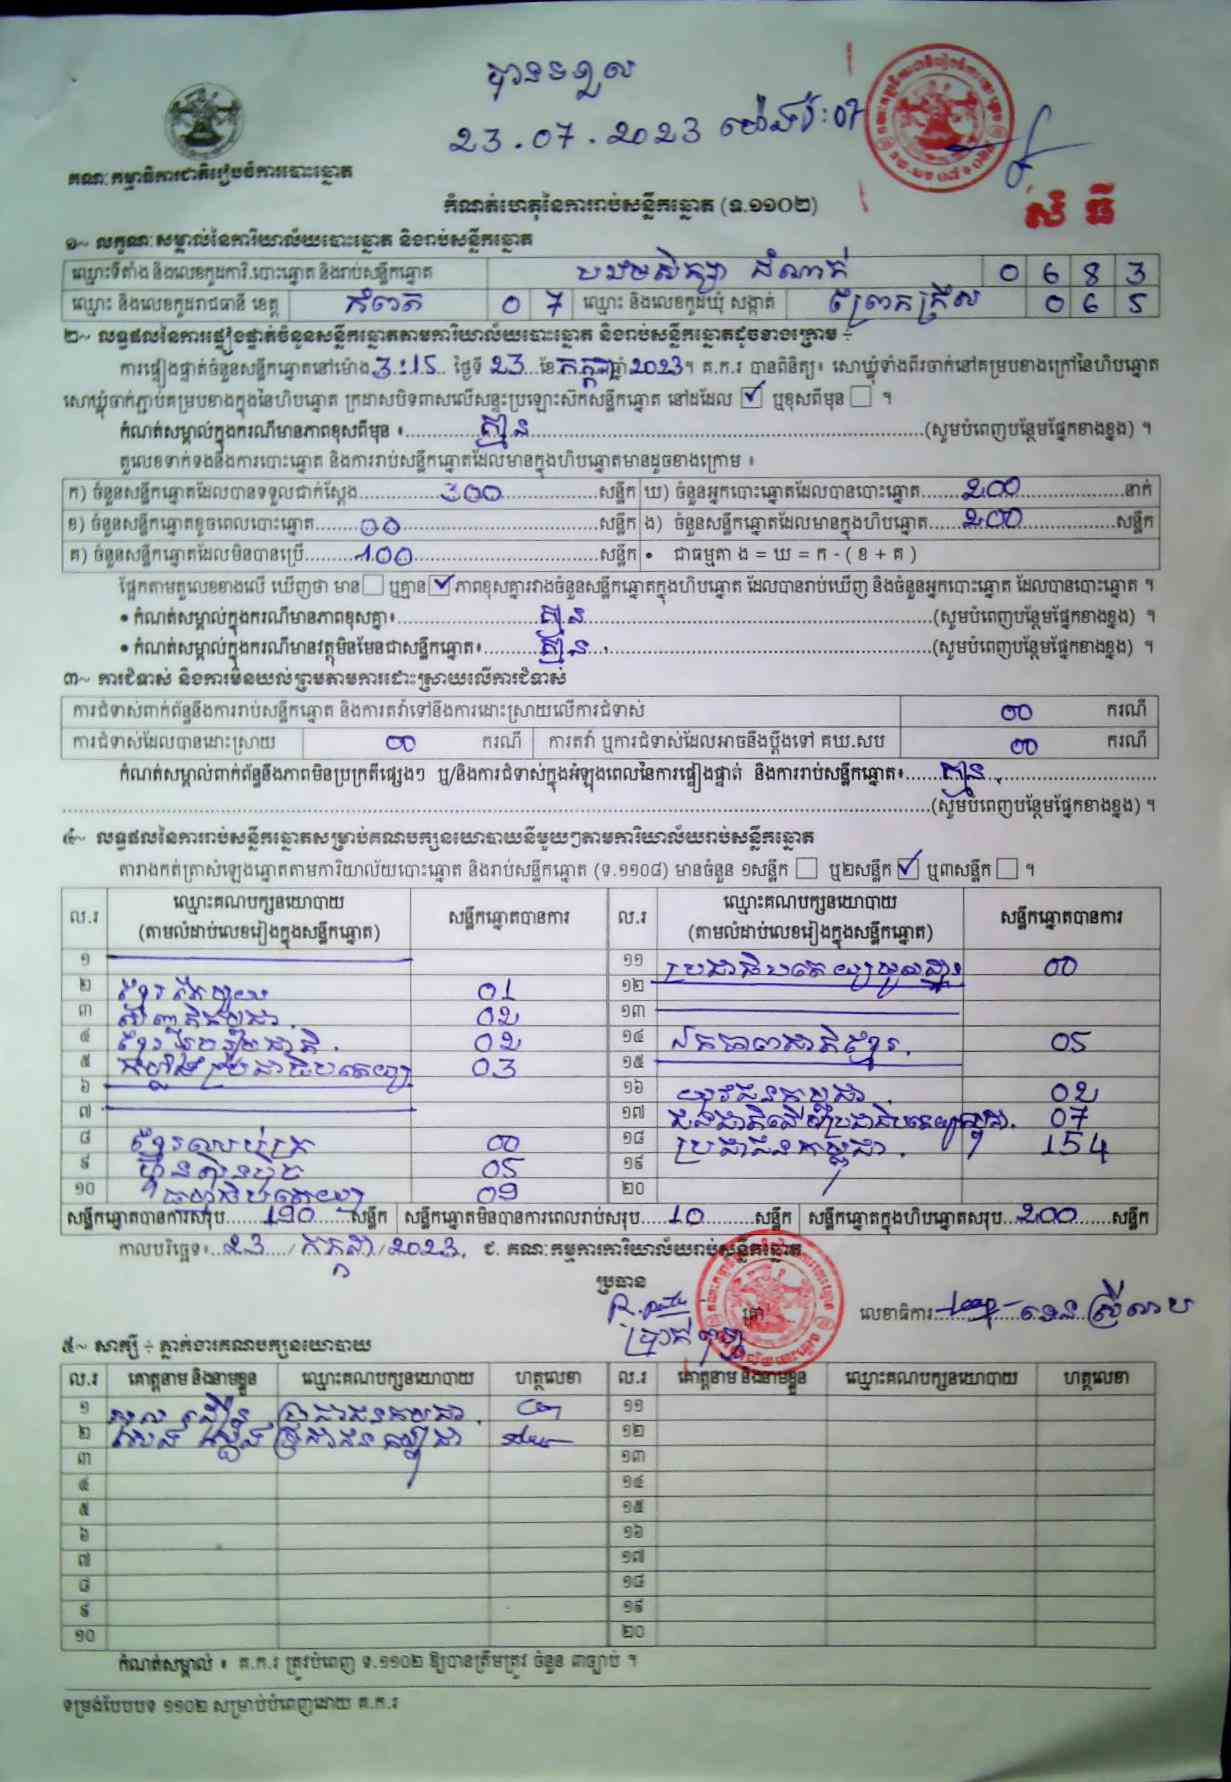 បានទទួល
23.07.2023 ម៉ោង
គណៈកម្មាធិការជាតិរៀបចំការបោះឆ្នោត
ស៊ំ ធី
កំណត់ហេតុនៃការរាប់សន្លឹកឆ្នោត (ទ.១១០២)
១~ លក្ខណៈសម្គាល់នៃការិយាល័យបោះឆ្នោត និងរាប់សន្លឹកឆ្នោត
ឈ្មោះទីតាំង និងលេខកូដការិ.បោះឆ្នោត និងរាប់សន្លឹកឆ្នោត បឋមសិក្សា ដំណាក់ 0 6 8 3
ឈ្មោះ និងលេខកូដរាជធានី ខេត្ត កំពត 0 7 ឈ្មោះ និងលេខកូដឃុំ សង្កាត់ ព្រែកក្រឹស 0 6 5
២~ លទ្ធផលនៃការផ្ទៀងផ្ទាត់ចំនួនសន្លឹកឆ្នោតតាមការិយាល័យបោះឆ្នោត និងរាប់សន្លឹកឆ្នោតដូចខាងក្រោម ÷
ការផ្ទៀងផ្ទាត់ចំនួនសន្លឹកឆ្នោតនៅម៉ោង 3:15 ថ្ងៃទី 23 ខែ កក្កដា ឆ្នាំ 2023។ គ.ក.រ បានពិនិត្យ៖ សោឃ្លុំទាំងពីរចាក់នៅគម្របខាងក្រៅនៃហិបឆ្នោត
សោឃ្លុំចាក់ភ្ជាប់គម្របខាងក្នុងនៃហិបឆ្នោត ក្រដាសបិទពាសលើសន្ទះប្រឡោះសំណុំសន្លឹកឆ្នោត នៅដដែល ☑ ឬខុសពីមុន ☐ ។
កំណត់សម្គាល់ក្នុងករណីមានភាពខុសពីមុន ៖ គ្មាន (សូមបំពេញបន្ថែមផ្នែកខាងខ្នង) ។
តួលេខទាក់ទងនឹងការបោះឆ្នោត និងការរាប់សន្លឹកឆ្នោតដែលមានក្នុងហិបឆ្នោតមានដូចខាងក្រោម ៖
ក) ចំនួនសន្លឹកឆ្នោតដែលបានទទួលជាក់ស្តែង 300 សន្លឹក ឃ) ចំនួនអ្នកបោះឆ្នោតដែលបានបោះឆ្នោត 200 នាក់
ខ) ចំនួនសន្លឹកឆ្នោតខូចពេលបោះឆ្នោត 00 សន្លឹក ង) ចំនួនសន្លឹកឆ្នោតដែលមានក្នុងហិបឆ្នោត 200 សន្លឹក
គ) ចំនួនសន្លឹកឆ្នោតដែលមិនបានប្រើ 100 សន្លឹក • ជាធម្មតា ង = ឃ = ក - ( ខ + គ )
ផ្អែកតាមតួលេខខាងលើ ឃើញថា មាន ☐ ឬគ្មាន ☑ ភាពខុសគ្នារវាងចំនួនសន្លឹកឆ្នោតក្នុងហិបឆ្នោត ដែលបានរាប់ឃើញ និងចំនួនអ្នកបោះឆ្នោត ដែលបានបោះឆ្នោត ។
• កំណត់សម្គាល់ក្នុងករណីមានភាពខុសគ្នា៖ គ្មាន (សូមបំពេញបន្ថែមផ្នែកខាងខ្នង) ។
• កំណត់សម្គាល់ក្នុងករណីមានវត្ថុមិនមែនជាសន្លឹកឆ្នោត៖ គ្មាន . (សូមបំពេញបន្ថែមផ្នែកខាងខ្នង) ។
៣~ ការជំទាស់ និងការមិនយល់ព្រមតាមការដោះស្រាយលើការជំទាស់
ការជំទាស់ពាក់ព័ន្ធនឹងការរាប់សន្លឹកឆ្នោត និងការតវ៉ាទៅនឹងការដោះស្រាយលើការជំទាស់ 00 ករណី
ការជំទាស់ដែលបានដោះស្រាយ 00 ករណី ការតវ៉ា ឬការជំទាស់ដែលអាចនឹងប្តឹងទៅ គឃ.សប 00 ករណី
កំណត់សម្គាល់ពាក់ព័ន្ធនឹងភាពមិនប្រក្រតីផ្សេងៗ ឬ/និងការជំទាស់ក្នុងអំឡុងពេលនៃការផ្ទៀងផ្ទាត់ និងការរាប់សន្លឹកឆ្នោត៖ គ្មាន .
(សូមបំពេញបន្ថែមផ្នែកខាងខ្នង) ។
៤~ លទ្ធផលនៃការរាប់សន្លឹកឆ្នោតសម្រាប់គណបក្សនយោបាយនីមួយៗតាមការិយាល័យរាប់សន្លឹកឆ្នោត
តារាងកត់ត្រាសំឡេងឆ្នោតតាមការិយាល័យបោះឆ្នោត និងរាប់សន្លឹកឆ្នោត (ទ.១១០៨) មានចំនួន ១សន្លឹក ☐ ឬ២សន្លឹក ☑ ឬ៣សន្លឹក ☐ ។
ល.រ ឈ្មោះគណបក្សនយោបាយ (តាមលំដាប់លេខរៀងក្នុងសន្លឹកឆ្នោត) សន្លឹកឆ្នោតបានការ ល.រ ឈ្មោះគណបក្សនយោបាយ (តាមលំដាប់លេខរៀងក្នុងសន្លឹកឆ្នោត) សន្លឹកឆ្នោតបានការ
១ ១១ ប្រជាធិបតេយ្យមូលដ្ឋាន 00
២ ខ្មែរតែមួយ 01 ១២
៣ សញ្ជាតិកម្ពុជា. 02 ១៣
៤ ខ្មែររួបរួមជាតិ. 02 ១៤ ឯកភាពជាតិខ្មែរ. 05
៥ កម្លាំងប្រជាធិបតេយ្យ 03 ១៥
៦ ១៦ យុវជនកម្ពុជា. 02
៧ ១៧ 07
៨ ខ្មែរឈប់ក្រ 00 ១៨ ប្រជាជនកម្ពុជា. 154
៩ ហ៊្វុនស៊ិនប៉ិច 05 ១៩
១០ ធម្មាធិបតេយ្យ 09 ២០
សន្លឹកឆ្នោតបានការសរុប 190 សន្លឹក សន្លឹកឆ្នោតមិនបានការពេលរាប់សរុប 10 សន្លឹក សន្លឹកឆ្នោតក្នុងហិបឆ្នោតសរុប 200 សន្លឹក
កាលបរិច្ឆេទ៖ 23 / កក្កដា / 2023. ជ. គណៈកម្មការការិយាល័យរាប់សន្លឹកឆ្នោត
ប្រធាន
លេខាធិការ
៥~ សាក្សី ÷ ភ្នាក់ងារគណបក្សនយោបាយ
ល.រ គោត្តនាម និងនាមខ្លួន ឈ្មោះគណបក្សនយោបាយ ហត្ថលេខា ល.រ គោត្តនាម និងនាមខ្លួន ឈ្មោះគណបក្សនយោបាយ ហត្ថលេខា
១ ប្រជាជនកម្ពុជា. ១១
២ ប្រជាជនកម្ពុជា ១២
៣ ១៣
៤ ១៤
៥ ១៥
៦ ១៦
៧ ១៧
៨ ១៨
៩ ១៩
១០ ២០
កំណត់សម្គាល់ ៖ គ.ក.រ ត្រូវបំពេញ ទ.១១០២ ឱ្យបានត្រឹមត្រូវ ចំនួន ៣ច្បាប់ ។
ទម្រង់បែបបទ ១១០២ សម្រាប់បំពេញដោយ គ.ក.រ